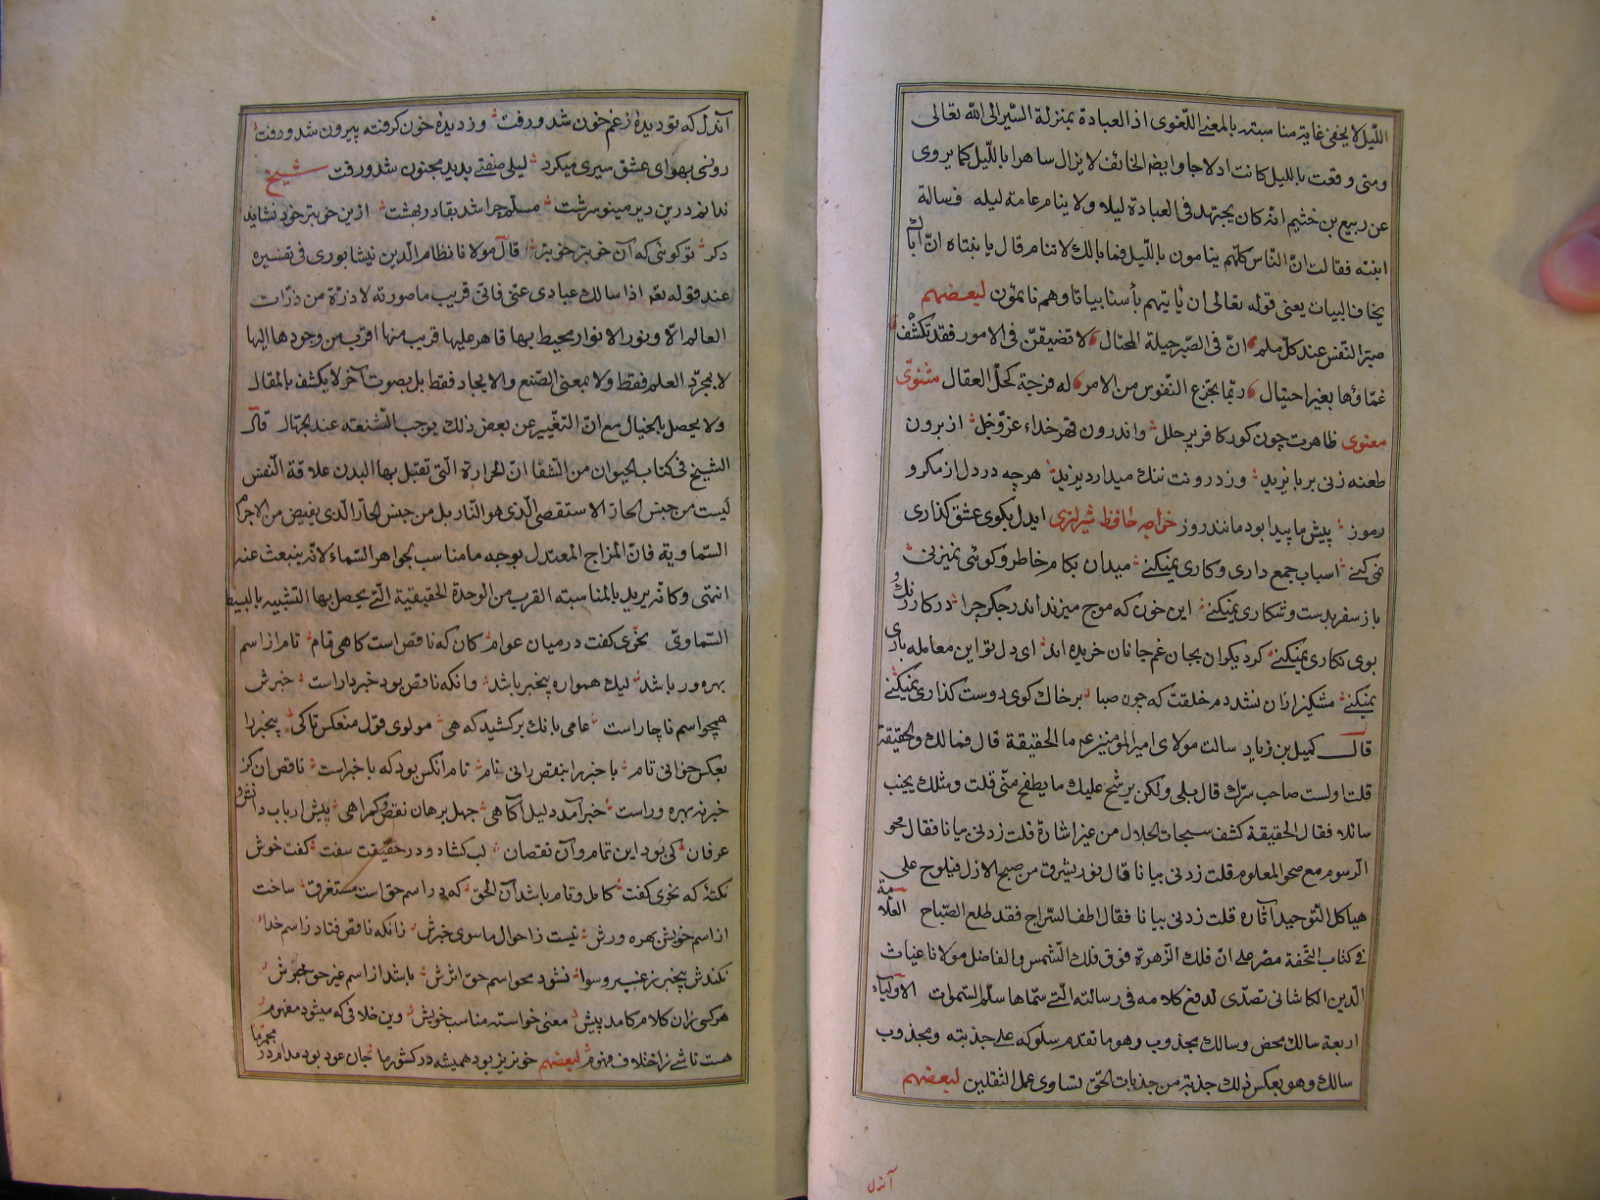 الليل لا يخفى غاية مناسبته بالمعنى اللغوى اذ العبادة بمنزلة السير الى الله تعالى
ومتى وقعت بالليل كانت ادلاجا وايضا الخائف لا يزال ساهرا بالليل كما يروى
عن ربيع بن خثيم انه كان يجتهد فى العبادة ليله ولا ينام عامة ليله فسالة
ابنته فقالت ان الناس كلهم ينامون بالليل فما بالك لا تنام قال يا بنتاه ان اباك
يخاف البيات يعنى قوله تعالى ان ياتيهم بأسنا بياتا وهم نائمون لبعضهم
صبر النفس عند كل ملم ان فى الصبر حيلة المحتال لا تضيقن فى الامور فقد تكشف
غماؤها بغير احتيال ربما تجزع النفوس من الامر له فرجة كحل العقال مثنوى
معنوى ظاهرت چون كور كافر پر حلل واندرون قهر خداء عز وجل از برون
طعنه زنى بر بايزيد وز درونت ننك ميدارد يزيد هرچه در دل از مكر و
رموز پيش ما پيدا بود مانند روز خواجه حافظ شيرازى ايدل بكوى عشق كذارى
نمى كنى اسباب جمع دارى وكارى نميكنى ميدان بكام خاطر وكوئى نميزنى
باز سفر بدست وشكارى نميكنى اين خون كه موج ميزند اندر جكر چرا در كار رنك و
بوى نكارى نميكنى كر ديكران بجان غم جانان خريده اند اى دل تو اين معامله بارى
نميكنى مشكين ازان نشد دم خلقت كه چون صبا بر خاك كوى دوست كذارى نميكنى
قال كميل بن زياد سالت مولاى امير المومنين ع م ما الحقيقة قال فمالك والحقيقة
قلت اولست صاحب سرك قال بلى ولكن يرشح عليك ما يطفح منى قلت ومثلك يخيب
سائلا فقال الحقيقة كشف سبحات الجلال من غير اشارة قلت زدنى بيانا فقال محو
الرسوم مع صحو المعلوم قلت زدنى بيانا قال نور يشرق من صبح الازل فيلوح على
هياكل التوحيد آثاره قلت زدنى بيانا فقال اطف السراج فقد طلع الصباح العلامة
فى كتاب التحفة مصر على ان فلك الزهرة فوق فلك الشمس والفاضل مولانا غياث
الدين الكاشانى تصدى لدفع كلامه فى رسالته التى سماها سلم السموات الاولياء
اربعة سالك محض وسالك مجذوب وهو ما تقدم سلوكه على جذبته ومجذوب
سالك وهو بعكس ذلك جذبة من جذبات الحق تساوى عمل الثقلين لبعضهم
آندل
آندل كه تو ديدۀ زغم خون شد ورفت وز ديدۀ خون كرفته بيرون شد ورفت
روزى بهواى عشق سيرى ميكرد ليلى صفتى بديد مجنون شد ورفت شيخ
نداند درين دير مينو سرشت مسلم چرا شد بقادر بهشت ازين خوبتر خود نشايد
دكر تو كوئى كه آن خوبتر خوبتر قال مولانا نظام الدين نيشابورى فى تفسيره
عند قوله تعم اذا سالك عبادى عنى فانى قريب ما صورته لا ذرة من ذرات
العالم الا ونور الانوار محيط بها قاهر عليها قريب منها اقرب من وجودها اليها
لا بمجرد العلم فقط ولا بمعنى الصنع والايجاد فقط بل بصوت آخر لا يكشف بالمقال
ولا يحصل بالخيال مع ان التعبير عن بعض ذلك يوجب الشنعة عند الجهال قال
الشيخ فى كتاب الحيوان من الشفا ان الحرارة التى تقبل بها البدن علاقة النفس
ليست من جنس الحار الاستقصى الذى هو النار بل من جنس الحار الذى يفيض من الاجرام
السماوية فان المزاج المعتدل بوجه ما مناسب لجواهر السماء لانه ينبعث عنه
انتمى وكانه يريد بالمناسبة القرب من الوحدة الحقيقية التى يحصل بها التشبيه بالبسيط
السماوى نحوى كفت در ميان عوام كان كه ناقص است كاهى تام تام از اسم
بهره ور باشد ليك همواره بيخبر باشد وانكه ناقص بود خبر دار است خبرش
همچو اسم ناچار است عامى بانك بر كشيد كه هى مولوى قول منعكس تا كى بيخبر را
بعكس خوانى تام با خبر را بنقص رانى نام تام آنكس بود كه با خبر است ناقص ان كز
خبر نه بهره ور است خبر آمد دليل آكاهى جهل برهان نقص وكمراهى پيش ارباب دانش و
عرفان كى بود اين تمام وآن نقصان لب كشاد ودر حقيقت سفت كفت خوش
نكتۀ كه نحوى كفت كامل وتام باشد آن الحق كه در اسم حق است مستغرق ساخت
از اسم خويش بهره ورش نيست ز احوال ماسوى خبرش زانكه ناقص فتاد ز اسم خدا
نكندش بيخبر ز غير وسوا نشود محو اسم حق اثرش باشد از اسم غير حق خبرش
هر كسى زان كلام كامد پيش معنى خواسته مناسب خويش وين خلافى كه ميشود مفهوم
هست ناشى ز اختلاف فهوم لبعضهم خونريز بود هميشه در كشور ما جان عود بود مدام در مجمر ما